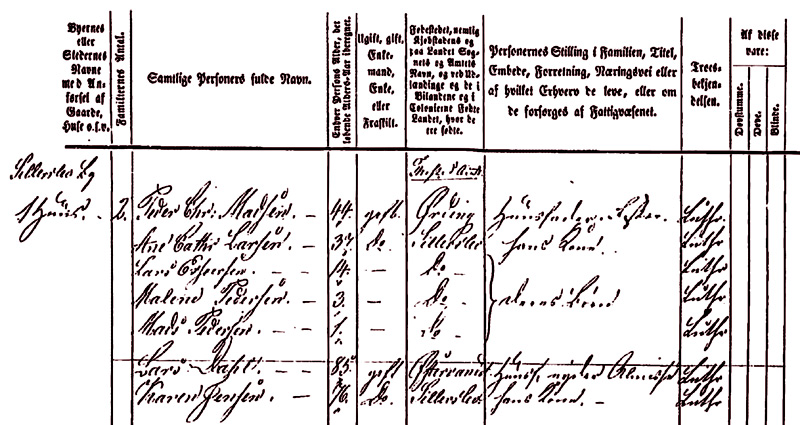 Byernes
eller
Stedernes
Navne
med An-
førsel af
Gaarde,
Huse o.s.v.
Familiernes Antal.
Samtlige Personers fulde Navn.
Enhver Persons Alder, det
løbende Alders-Aar iberegnet.
Ugift, gift,
Enke-
mand,
Enke,
eller
Fraskilt.
Fødestedet, nemlig
Kjøbstadens og
paa Landet Sog-
nets og Amtets
Navn, og ved Ud-
lændinge og de i
Bilandene og i
Colonierne Fødte
Landet, hvor de
ere fødte.
Personernes Stilling i Familien, Titel,
Embede, Forretning, Næringsvei eller
af hvilket Erhverv de leve, eller om
de forsørges af Fattigvæsenet.
Troes-
bekjen-
delsen.
Af disse
vare:
Døvstumme.
Døve.
Blinde.
Sillerslev By
1 Huus. 2. Peder Chr. Madsen. — 44. gift. Ørding Huusfader Luthr
Ane Cathr Larsen. — 37. do. Sillerslev hans Kone. Luthr
Lars Pedersen. — 14. — do — Luthr
Malene Pedersen. — 3. — do. deres børn Luthr
Mads Pedersen. — 1. — do Luthr
Lars Dahl. — 85. gift Huusf. nyder Almisse Luthr
Karen Jensen. — 76. do. Sillerslev. hans Kone. — Luthr